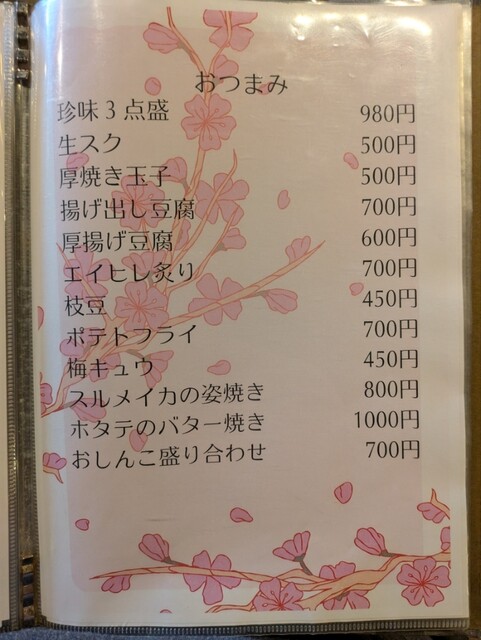 おつまみ
珍味3点盛 980円
生スク 500円
厚焼き玉子 500円
揚げ出し豆腐 700円
厚揚げ豆腐 600円
エイヒレ炙り 700円
枝豆 450円
ポテトフライ 700円
梅キュウ 450円
スルメイカの姿焼き 800円
ホタテのバター焼き 1000円
おしんこ盛り合わせ 700円